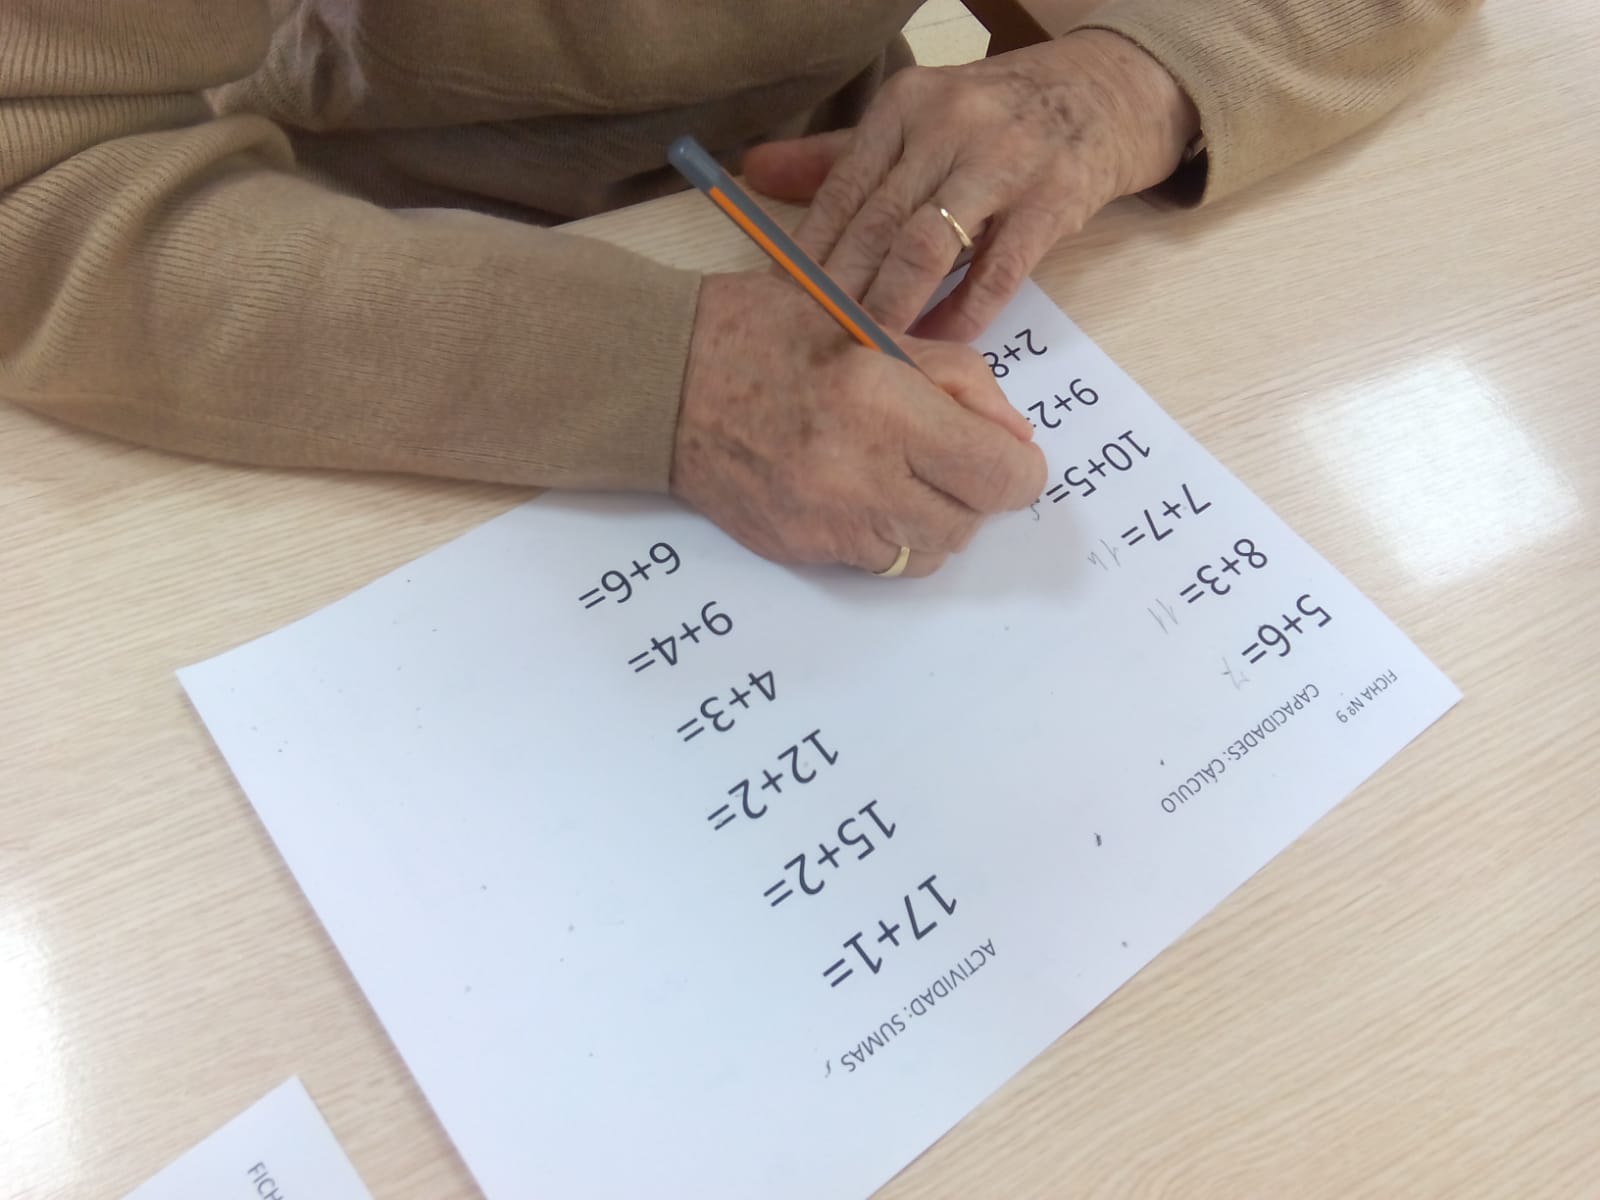 FICHA Nº 9
CAPACIDADES: CÁLCULO
ACTIVIDAD: SUMAS
5+6= 7
8+3= 11
7+7= 14
10+5=
9+2=
2+8
17+1=
15+2=
12+2=
4+3=
9+4=
6+6=